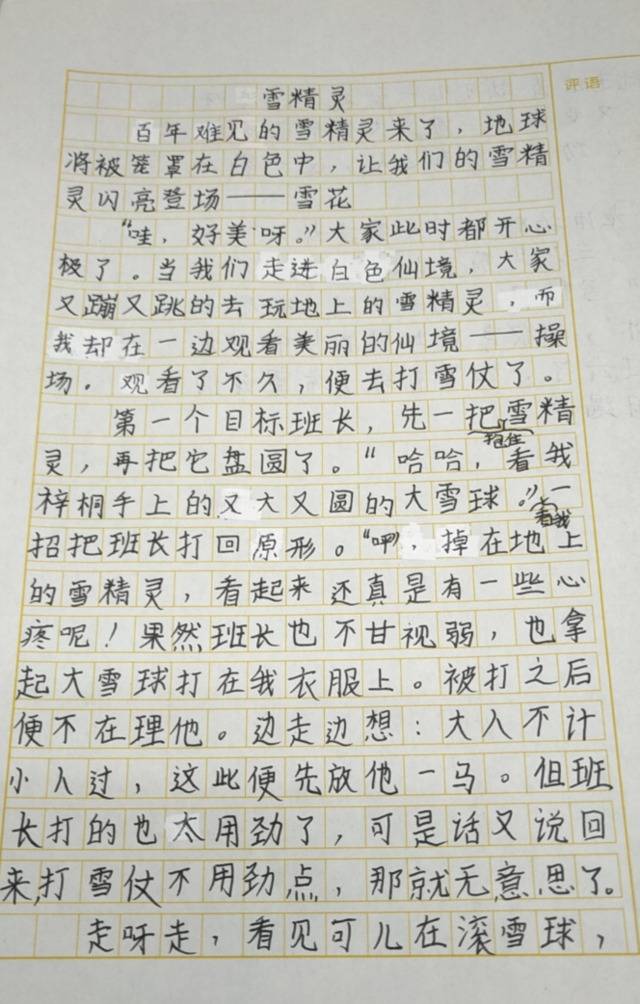 评语
雪精灵
百年难见的雪精灵来了，地球
将被笼罩在白色中，让我们的雪精
灵闪亮登场——雪花
“哇，好美呀。”大家此时都开心
极了。当我们走进白色仙境，大家
又蹦又跳的去玩地上的雪精灵，而
我却在一边观看美丽的仙境——操
场。观看了不久，便去打雪仗了。
第一个目标班长，先一把雪精
抱住
灵，再把它盘圆了。“哈哈，看我
梓桐手上的又大又圆的大雪球。”一
看我
招把班长打回原形。“啊”，掉在地上
的雪精灵，看起来还真是有一些心
疼呢！果然班长也不甘视弱，也拿
起大雪球打在我衣服上。被打之后
便不在理他。边走边想：大人不计
小人过，这此便先放他一马。但班
长打的也太用劲了，可是话又说回
来，打雪仗不用劲点，那就无意思了。
走呀走，看见可儿在滚雪球，